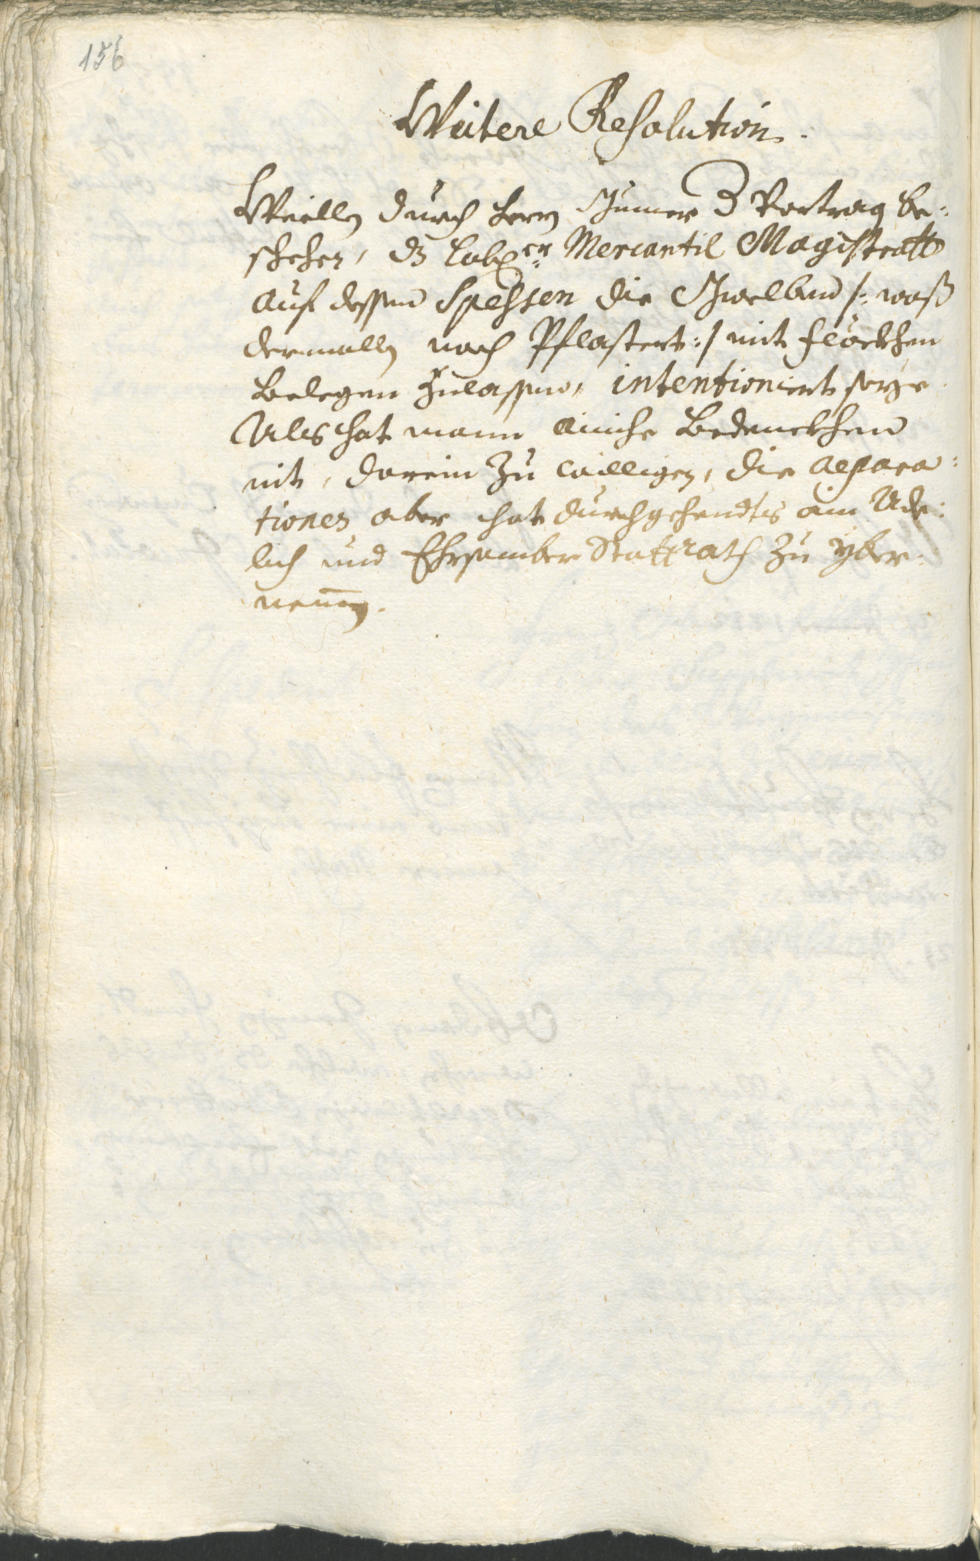 156
Weitere Resolution.
Weillen durch herrn Gumer Vortrag be:
schehen, dz Lobl: er Mercantil Magistratt
auf dessen Spessen die Gwelben /: waß
dermallen noch Pflastert :/ mit flöckhen
belegen zulassen, intentioniert seye
Als hat mann ainiche Bedenckhen
nit, darein zu willigen, die Repara:
tionen aber hat durchgehendts ain Ade:
lich und Ehrsamber Stattrath zu yber:
nemen.